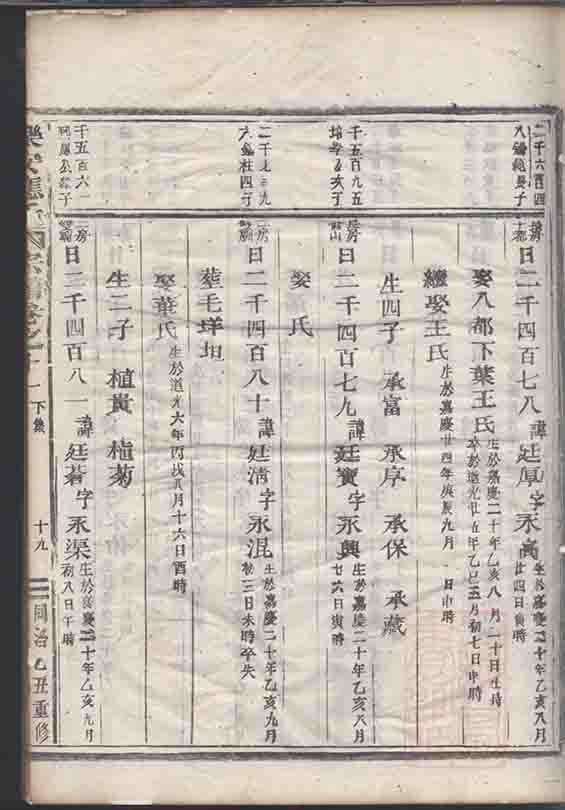 二千六百四
八
房
日二千四百七八 諱廷厚字永高 生於嘉慶二十年乙亥八月
廿四日寅時
娶八都下葉王氏 生於嘉慶二十年乙亥八月二十日生時
卒於道光廿五年乙巳五月初七日申時
繼娶王氏 生於嘉慶廿四年庚辰九月 日申時
生四子 承富 承厚 承保 承藏
千五百九五
房
日二千四百七九 諱廷寶字永興 生於嘉慶二十年乙亥八月
廿六日寅時
娶 氏
二千
房
日二千四百八十 諱廷清字永混 生於嘉慶二十年乙亥九月
初三日未時卒失
葬毛垟坦
娶葉氏 生於道光六年丙戌八月十六日酉時
生二子 植貴 植菊
千五百六一
房
日二千四百八一 諱廷 字永渠 生於嘉慶二十年乙亥九月
初八日午時
下集
十九
同治乙丑重修